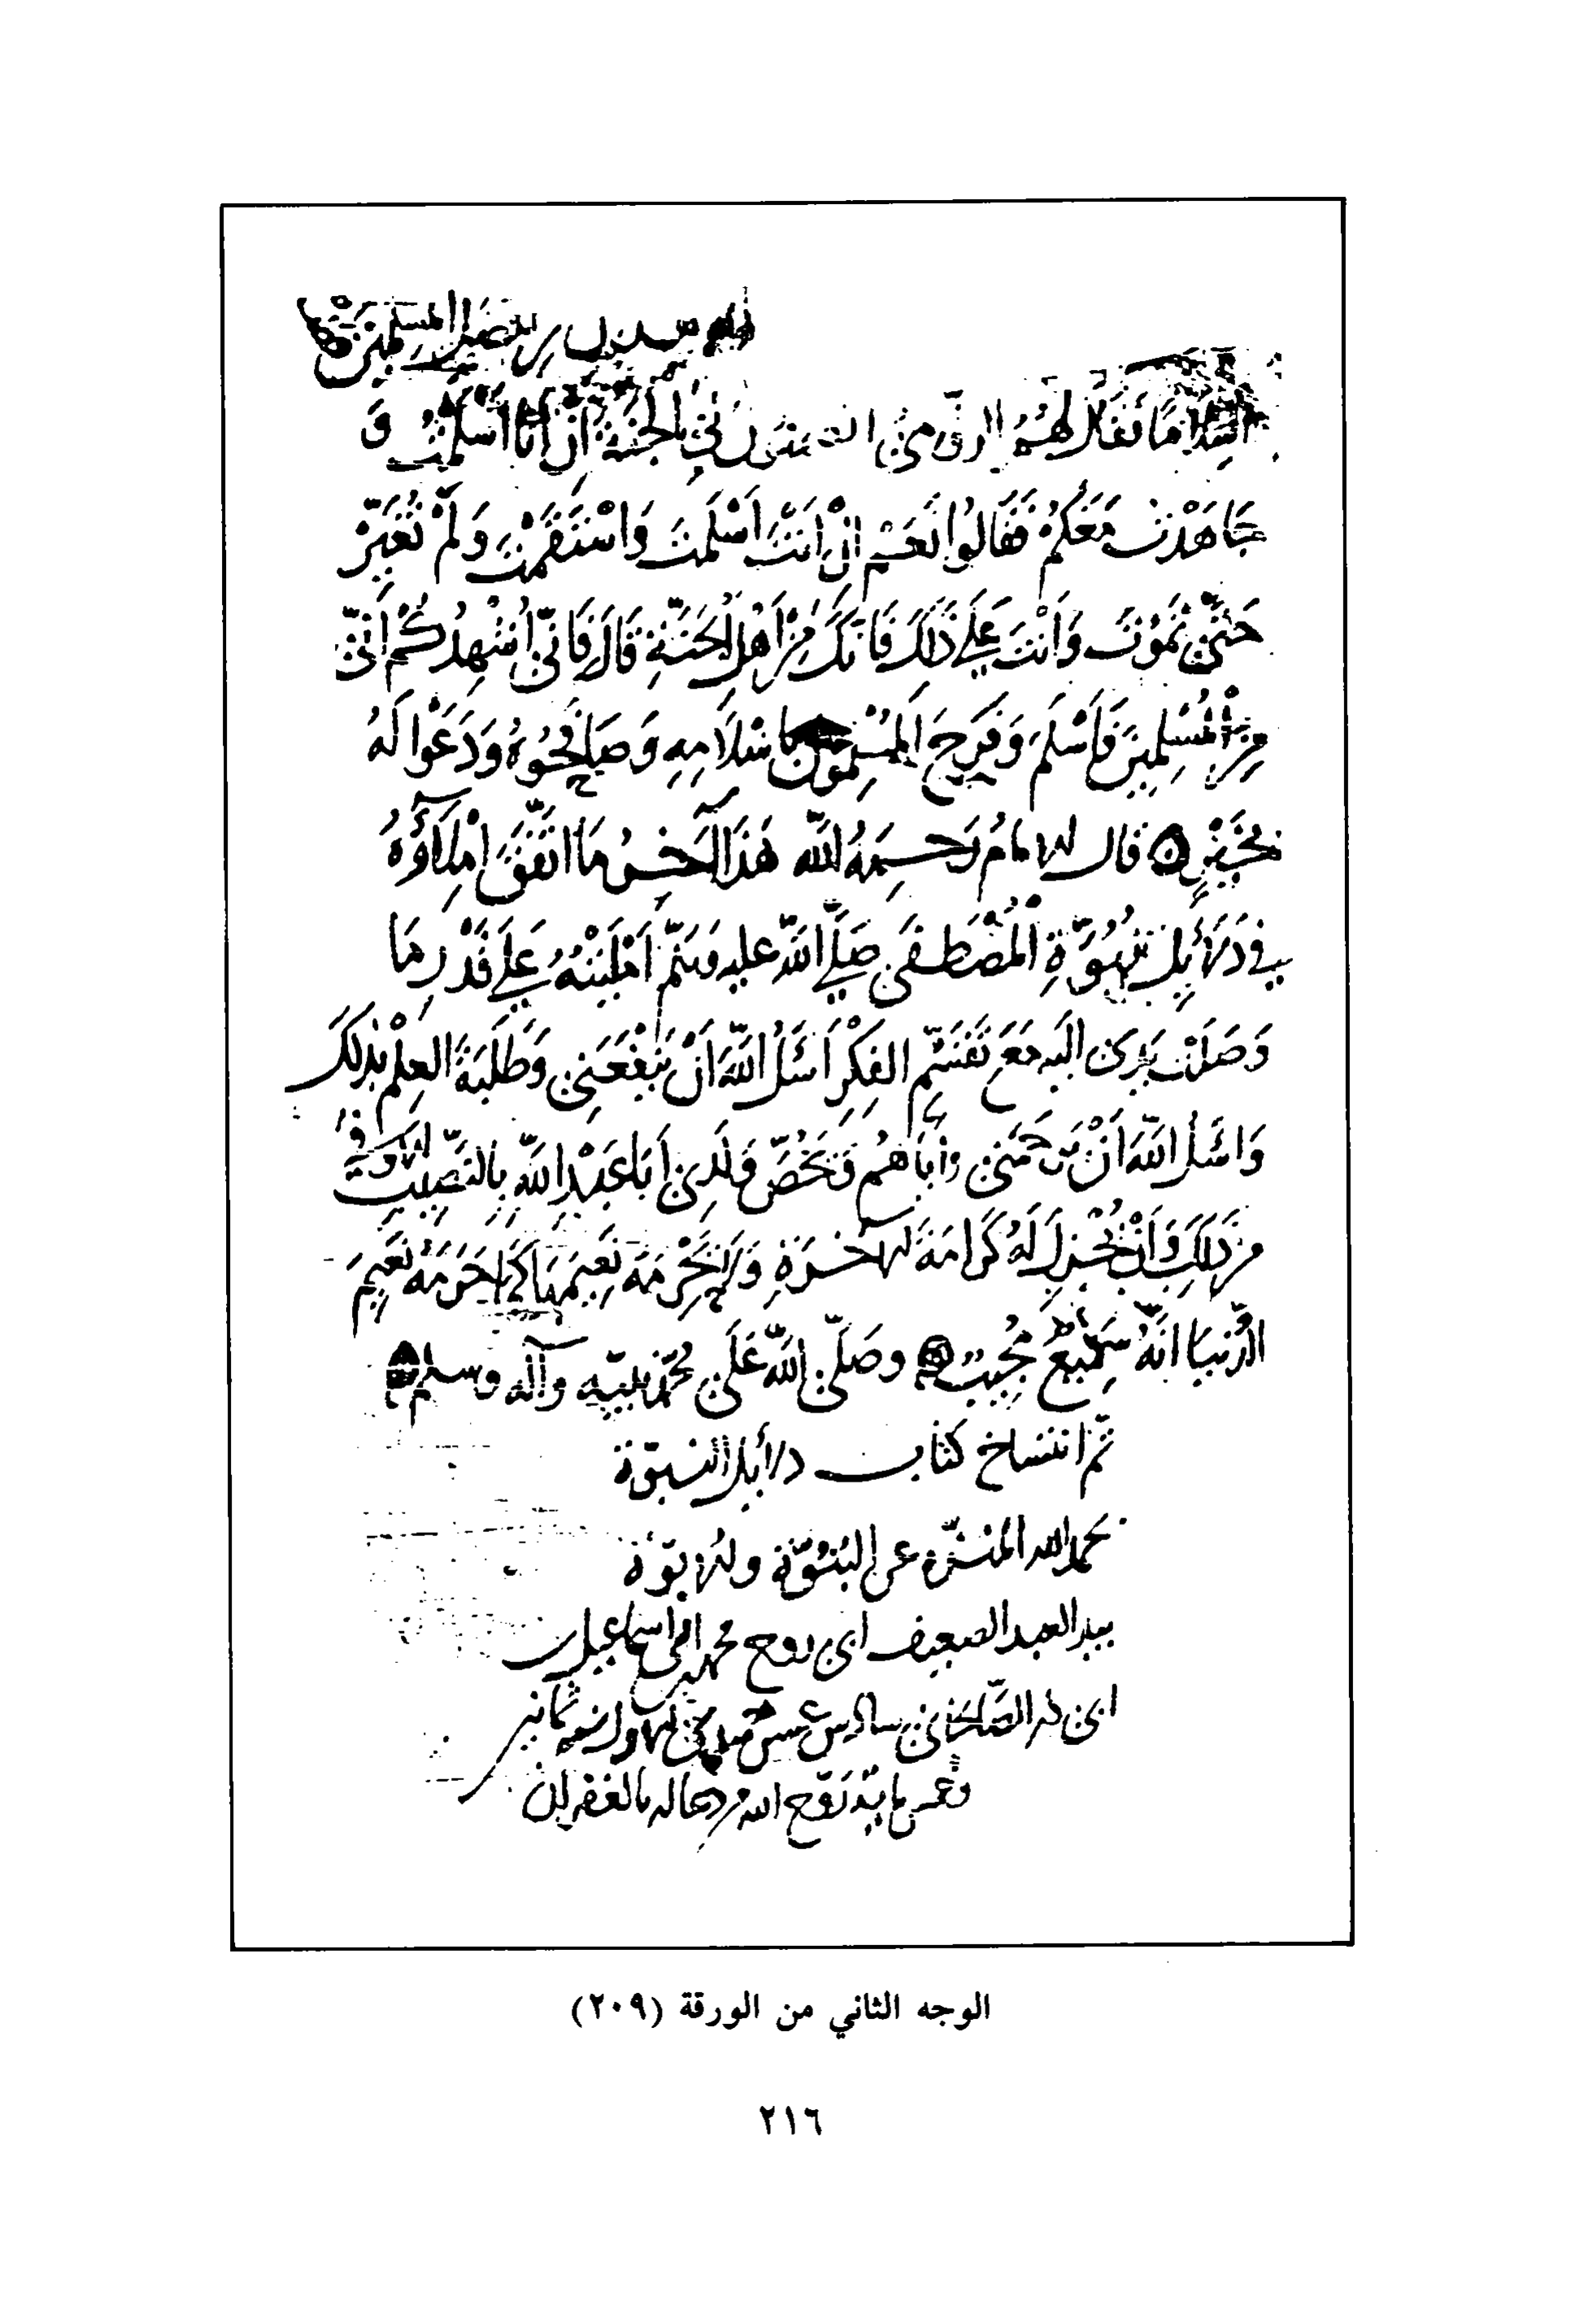 المسلمين
فقال لهم بالجنة إن أنا أسلمت و
جَاهَدْت مَعَكُمْ فَقَالُوا نَعَمْ إِنْ أَنْتَ أَسْلَمْتَ وَاسْتَقَمْتَ وَلَمْ تُغَيِّرْ
حَتَّى تَمُوتَ وَأَنْتَ عَلَى ذَلِكَ فَإِنَّكَ مِنْ أَهْلِ الْجَنَّةِ قَالَ فَإِنِّي أُشْهِدُكُمْ أَنِّي
مِنَ الْمُسْلِمِينَ فَأَسْلَمَ وَفَرِحَ الْمُسْلِمُونَ بِإِسْلَامِهِ وَصَافَحُوهُ وَدَعَوْا لَهُ
بِخَيْرٍ قال الإمامُ رَحِمَهُ الله هَذَا آخِرُ مَا اتَّفَقَ إِمْلَاؤُهُ
في دَلَائِلِ نُبُوَّةِ الْمُصْطَفَى صَلَّى اللَّهُ عليه وَسَلَّمَ أَمْلَيْتُهُ عَلَى قَدْرِ مَا
وَصَلَتْ يَدِي إليه مَعَ تَقَسُّمِ الفِكْرِ أَسْأَلُ اللَّهَ أَنْ يَنْفَعَنِي وَطَلَبَةَ العِلْمِ بِذَلِكَ
وَأَسْأَلُ اللَّهَ أَنْ يَرْحَمَنِي وَإِيَّاهُمْ وَيَخُصَّ وَلَدِي أَبَا عَبْدِ اللَّهِ بِالنَّصِيبِ الأَوْفَى
مِنْ ذَلِكَ وَأَنْ يُجْزِلَ لَهُ كَرَامَةَ الآخِرَةِ وَلَا يَحْرِمَهُ نَعِيمَهَا كَمَا حَرَمَهُ نَعِيمَ
الدُّنْيَا إِنَّهُ سَمِيعٌ مُجِيبٌ وصَلَّى اللَّهُ عَلَى مُحَمَّدٍ نَبِيِّهِ وآله وسلم
تمّ انتساخ كتاب دلائل النبوّة
بحمد الله المنزّه عن البُنُوّة والأبوّة
بيد العبد الضعيف ابي روح محمد بن اسماعيل
بالغفران
الوجه الثاني من الورقة (٢٠٩)
٢١٦